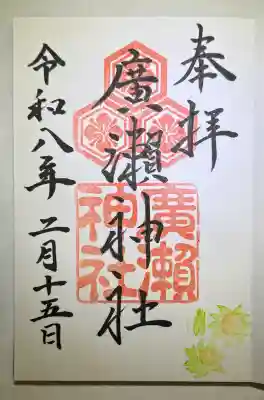 奉拝
廣瀬神社
廣瀬神社
令和八年二月十五日